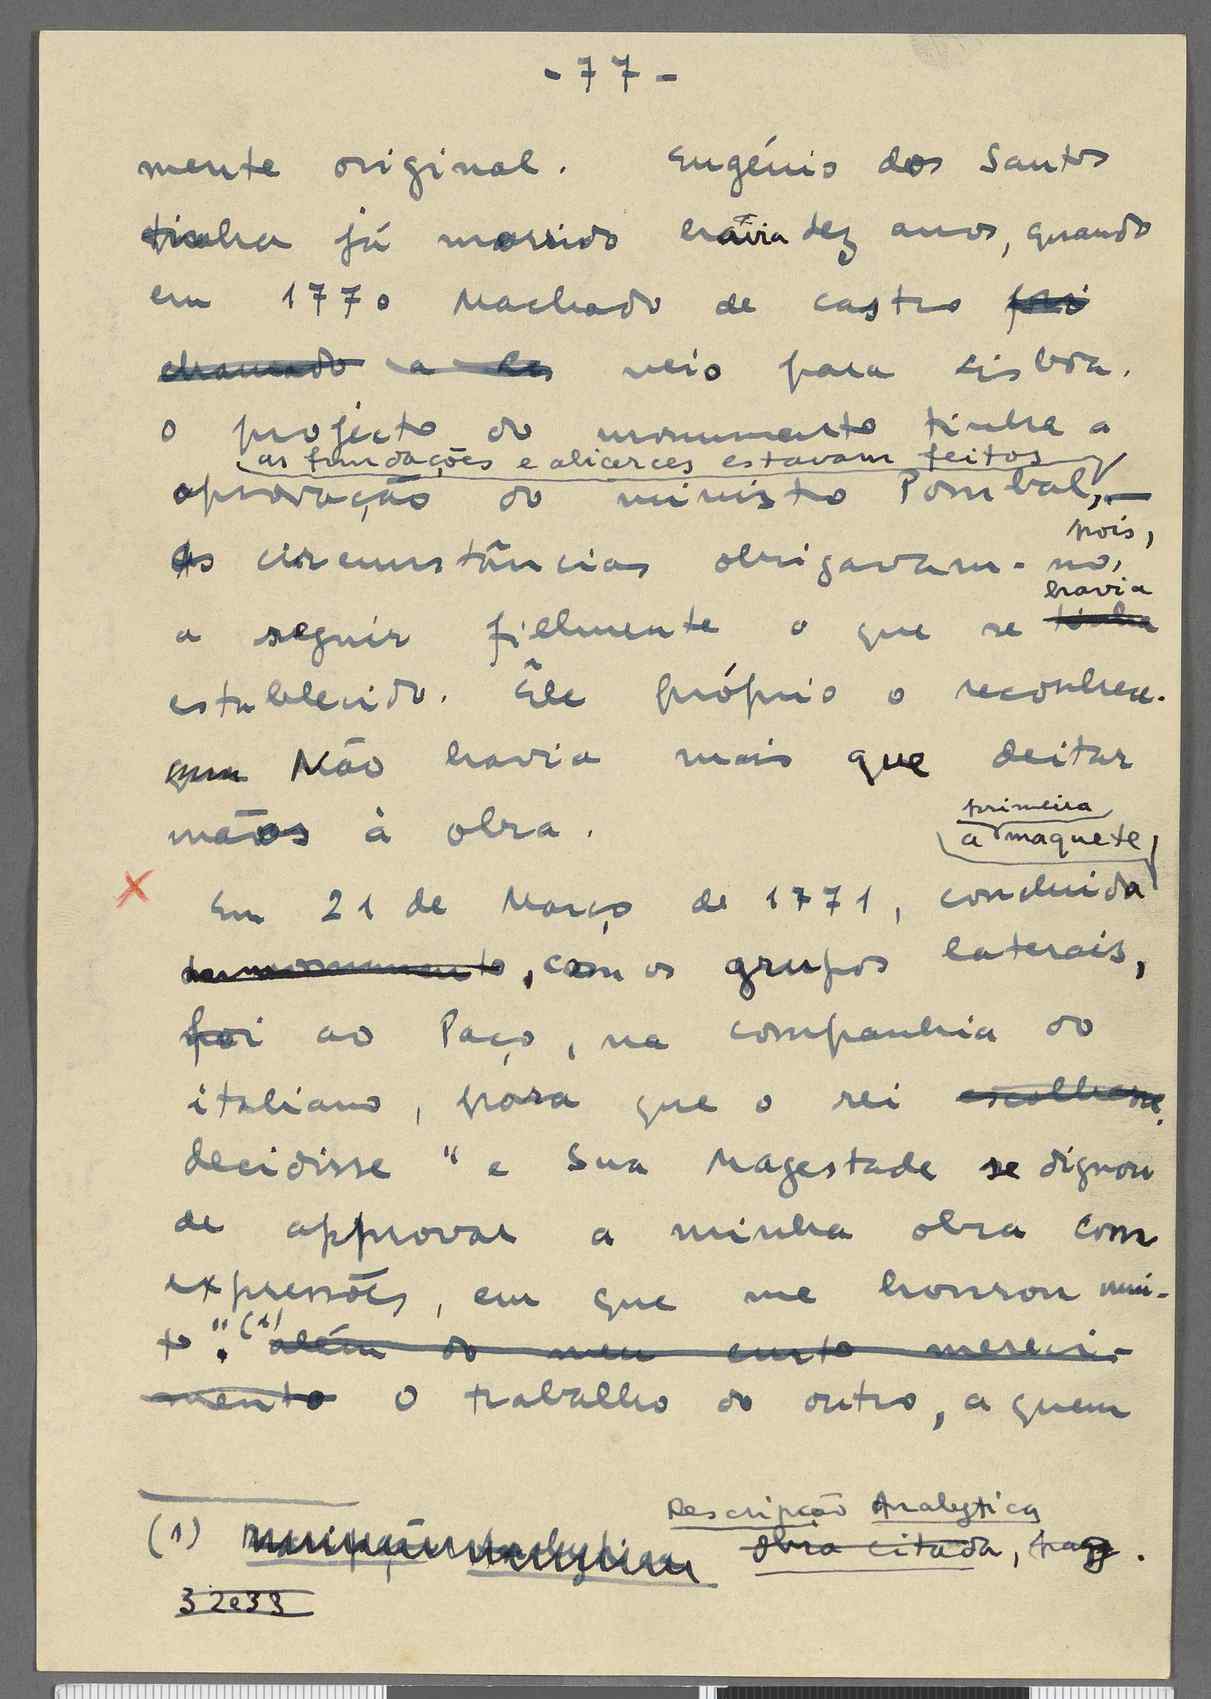 -77-
mente original. Eugénio dos Santos
tinha já morrido havia dez anos, quando
em 1770 Machado de Castro foi
chamado a Lis veio para Lisboa.
O projecto do monumento tinha a
as fundações e alicerces estavam feitos
aprovação do ministro Pombal,
As circunstâncias obrigavam-no,
pois,
a seguir fielmente o que se tinha
havia
establecido. Êle próprio o reconhece.
Não havia mais que deitar
mãos à obra.
primeira
a maquete
Em 21 de Março de 1771, concluida
monumento, com os grupos laterais,
foi ao Paço, na companhia do
italiano, para que o rei escolhesse
decidisse "e Sua Magestade se dignou
de approvar a minha obra com
expressões, em que me honrou mui-
to". (1) além do meu curto mereci-
mento O trabalho do outro, a quem
Descripção Analytica
(1) obra citada, pag.
32e33